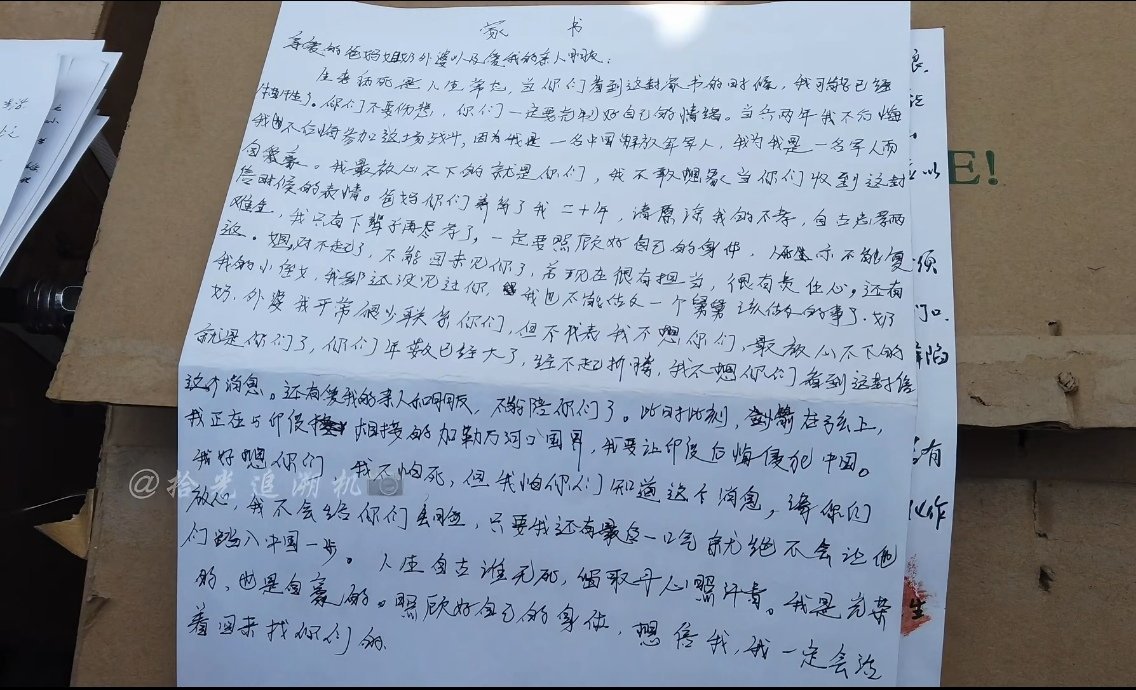 家 书
亲爱的爸妈姐奶外婆以及爱我的亲人朋友：
生老病死是人生常态，当你们看到这封家书的时候，我可能已经
牺牲了。你们不要伤悲，你们一定要克制好自己的情绪。当兵两年我不后悔
我也不后悔参加这场战斗，因为我是一名中国解放军军人，我为我是一名军人而
自我豪。我最放心不下的就是你们，我不敢想象当你们收到这封
信时候的表情。爸妈你们养育了我二十年，请原谅我的不孝，自古忠孝两
难全，我只有下辈子再尽孝了，一定要照顾好自己的身体，
这。姐，对不起了，不能回来见你了，弟现在很有担当，很有责任心。还有
我的小侄女，我都还没见过你，我也不能做一个舅舅该做的事了。奶
奶，外婆我平常很少联系你们，但不代表我不想你们，最放心不下的
就是你们了，你们年数已经大了，经不起折腾，我不想你们看到这封信
这个消息。还有爱我的亲人和朋友，不能陪你们了。此时此刻，箭在弦上，
我正在与印度相接的加勒万河谷国界，我要让印度后悔侵犯中国。
我好想你们 我不怕死，但我怕你们知道这个消息，请你们
放心，我不会给你们丢脸，只要我还有最后一口气就绝不会让他
们踏入中国一步。 人生自古谁无死，留取丹心照汗青。我是光荣
的，也是自豪的。照顾好自己的身体，相信我，我一定会活
着回来找你们的
@拾柒追溯机
E!
以
须
有
作
生